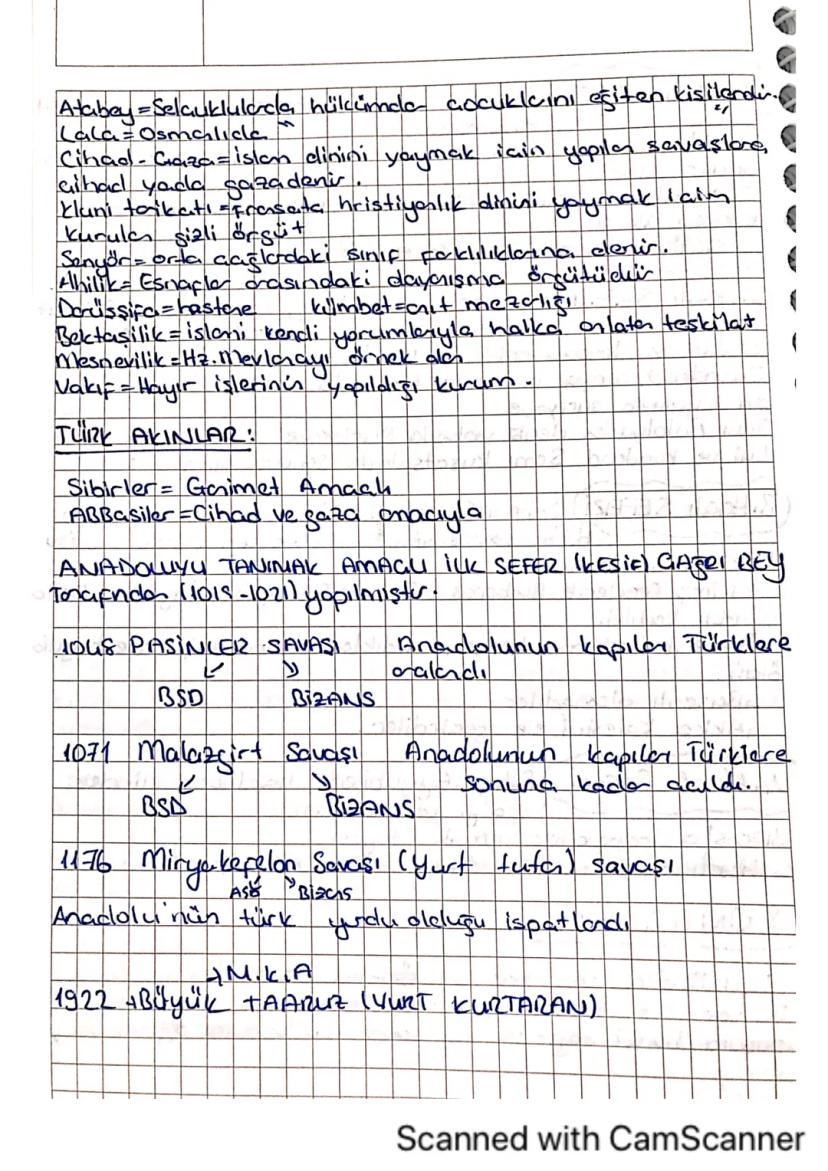 Atabey = Selcuklularda hükümdar çocuklarını eğiten kişilerdir.
Lala = Osmanlıda "
Cihad - Gaza = islam dinini yaymak için yapılan savaşlara,
cihad yada gaza denir.
Kluni tarikatı = Fransata hristiyanlık dinini yaymak icin
kurulan gizli örgüt
Senyör = orta çağlardaki sınıf farklılıklarına denir.
Ahilik = Esnaflar arasındaki dayanışma örgütüdür
Darüşşifa = hastane kümbet = anıt mezarlığı
Bektaşilik = islami kendi yorumlarıyla halka anlatan teskilat
Mesnevilik = Hz. Mevlanayı örnek alan
Vakıf = Hayır işlerinin yapıldığı kurum.
TÜRK AKINLAR:
Sibirler = Ganimet Amaçlı
ABBasiler = Cihad ve gaza amacıyla
ANADOLUYU TANIMAK AMAÇLI İLK SEFER (KEŞİF) ÇAĞRI BEY
Tarafından (1018 - 1021) yapılmıştır.
1048 PASİNLER SAVAŞI Anadolunun kapıları Türklere
aralandı
BSD BİZANS
1071 Malazgirt Savaşı Anadolunun kapıları Türklere
sonuna kadar açıldı.
BSD BİZANS
1176 Miryakefelon Savaşı (Yurt tutan) savaşı
ASD Bizans
Anadolu'nün türk yurdu olduğu ispatlandı
→ M.K.A
1922 → Büyük TAARUZ (YURT KURTARAN)
Scanned with CamScanner